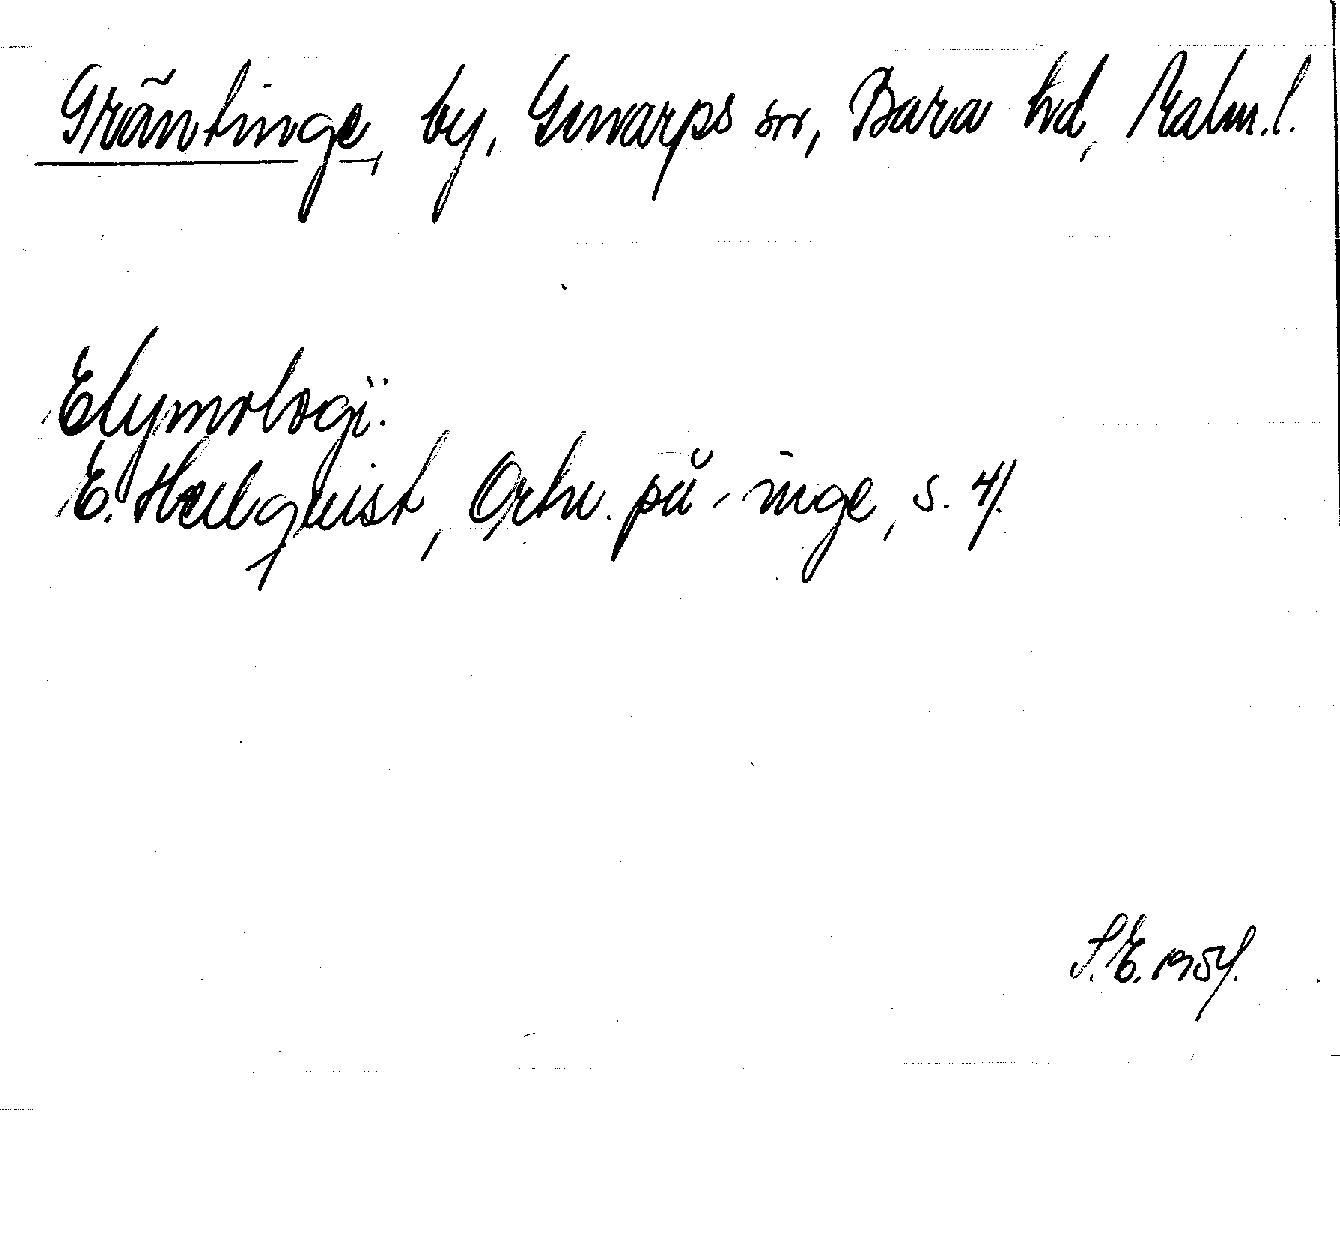 Gräntinge, by, Genarps sn, Bara hd, Malm. l.
Etymologi:
E. Hellquist, Ortn. på -inge, s. 41.
S. E. 1954.